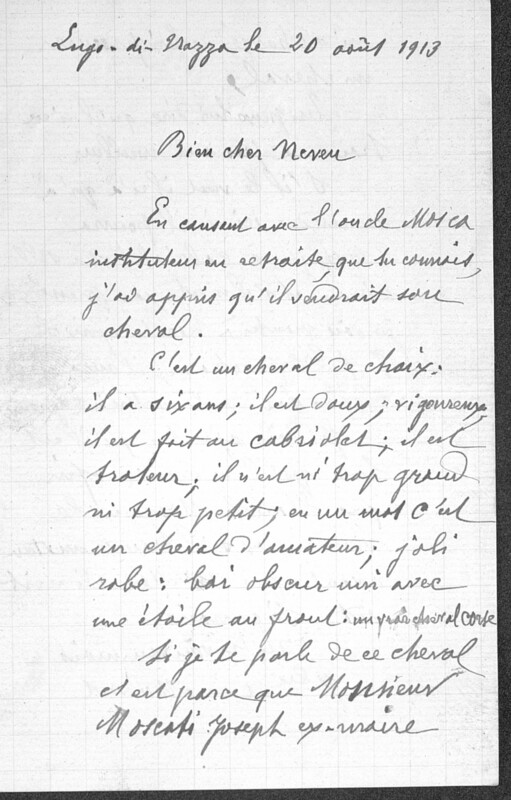 Lugo-di-Nazza le 20 août 1913
Bien cher Neveu
En causant avec l'oncle Mosca
instituteur en retraite, que tu connais,
j'ai appris qu'il vendrait son
cheval.
C'est un cheval de choix:
il a six ans; il est doux, vigoureux,
il est fait au cabriolet; il est
troteur; il n'est ni trop grand
ni trop petit; en un mot c'est
un cheval d'amateur; joli
robe: bai obscur uni avec
une étoile au front: un vrai cheval corse
Si je te parle de ce cheval
c'est parce que Monsieur
Moscati Joseph ex-maire